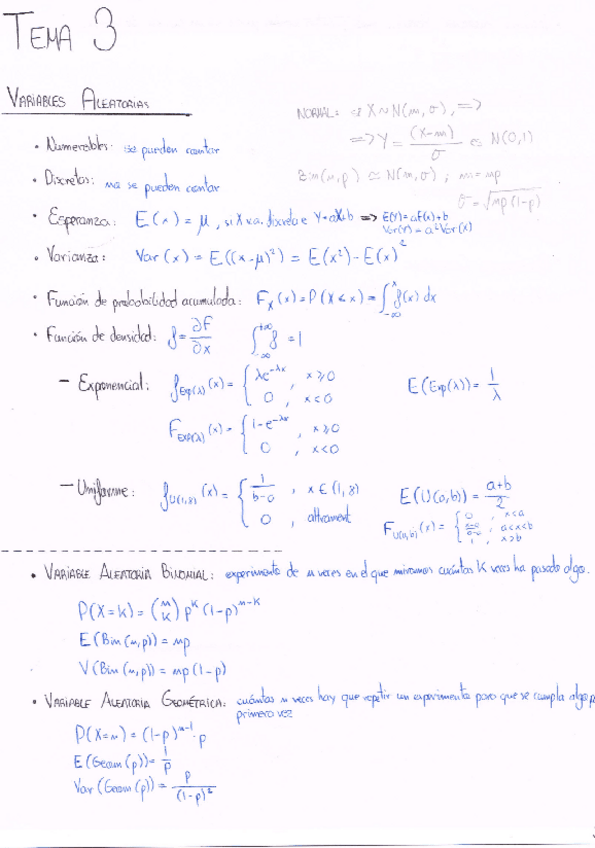 TEMA 3
VARIABLES ALEATORIAS
NORMAL: si X~N(m,σ), =>
=> Y = (X-m)/σ es N(0,1)
Bin(n,p) ≃ N(m,σ) ; m=np
σ=√np(1-p)
• Numerables: se pueden contar
• Discretas: no se pueden contar
• Esperanza: E(x) = μ, si X v.a. discreta e Y=aX+b => E(Y)=aE(x)+b
Var(Y)=a²Var(x)
• Varianza: Var(x) = E((x-μ)²) = E(x²)-E(x)²
• Función de probabilidad acumulada: F_X(x)=P(X<x)=∫_{-∞}^{x} f(x) dx
• Función de densidad: f=∂F/∂x ∫_{-∞}^{+∞} f =1
- Exponencial: f_{Exp(λ)}(x) = { λe^{-λx}, x≥0
0, x<0
E(Exp(λ)) = 1/λ
F_{Exp(λ)}(x) = { 1-e^{-λx}, x≥0
0, x<0
- Uniforme: f_{U(1,8)}(x) = { 1/(b-a), x∈(1,8)
0, altrament
E(U(a,b)) = (a+b)/2
F_{U(a,b)}(x) = { 0, x<a
, a<x<b
1, x>b
• VARIABLE ALEATORIA BINOMIAL: experimento de n veces en el que miramos cuántas K veces ha pasado algo.
P(X=k) = (n K) p^K (1-p)^{n-K}
E(Bin(n,p)) = np
V(Bin(n,p)) = np(1-p)
• VARIABLE ALEATORIA GEOMÉTRICA: cuántas n veces hay que repetir un experimento para que se cumpla algo p
primera vez
P(X=n) = (1-p)^{n-1}·p
E(Geom(p)) = 1/p
Var(Geom(p)) = p/(1-p)²